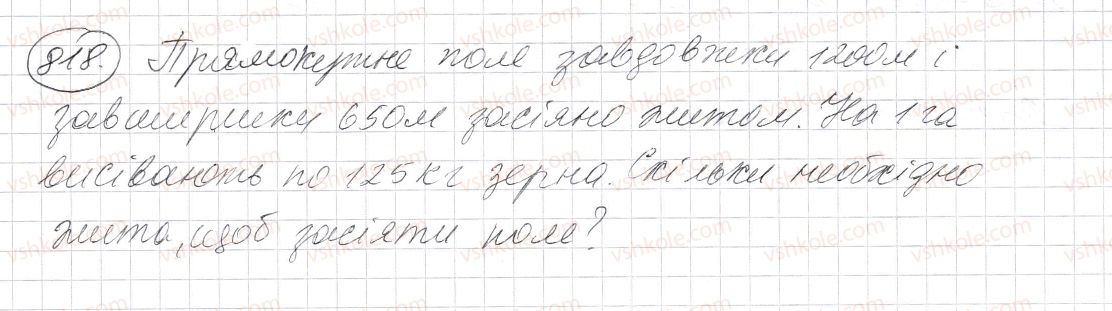 818. Прямокутне поле завдовжки 1200м і
завширшки 650м засіяно житом. На 1га
висівають по 125кг зерна. Скільки необхідно
жита, щоб засіяти поле?